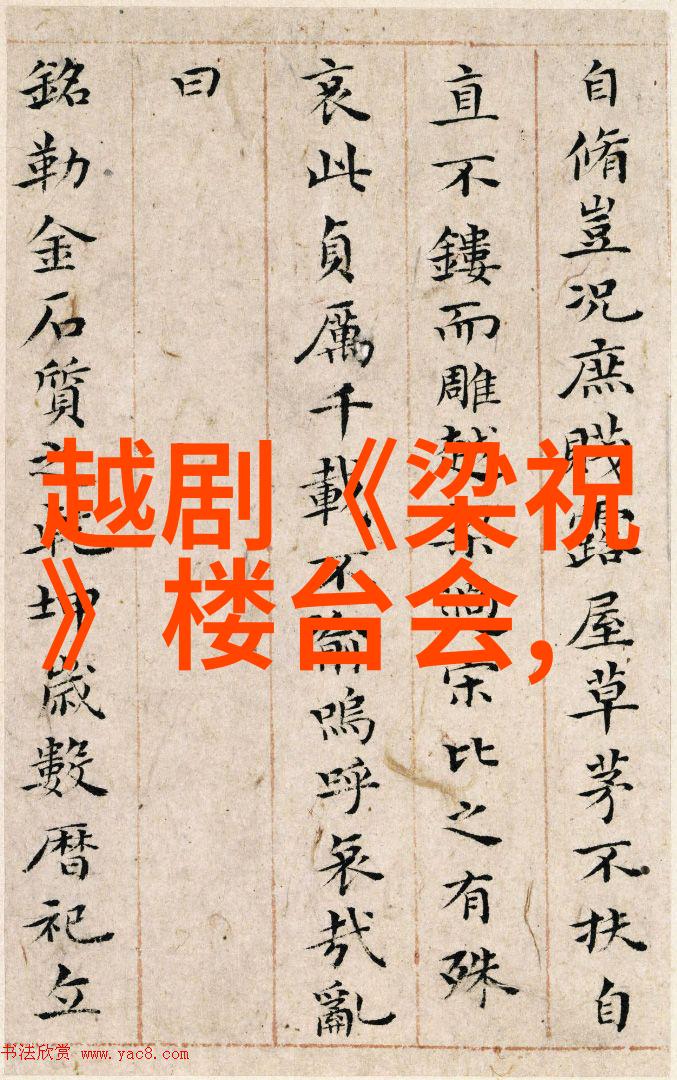 自脩豈況庶賤露屋草茅不扶自
直不鏤而雕越梁過宋比之有殊
哀此貞厲千載不渝嗚呼哀哉亂
曰
銘勒金石質之乾坤歲數暦祀立
越剧《梁祝
》楼台会,
书法欣赏 www.yac8.com